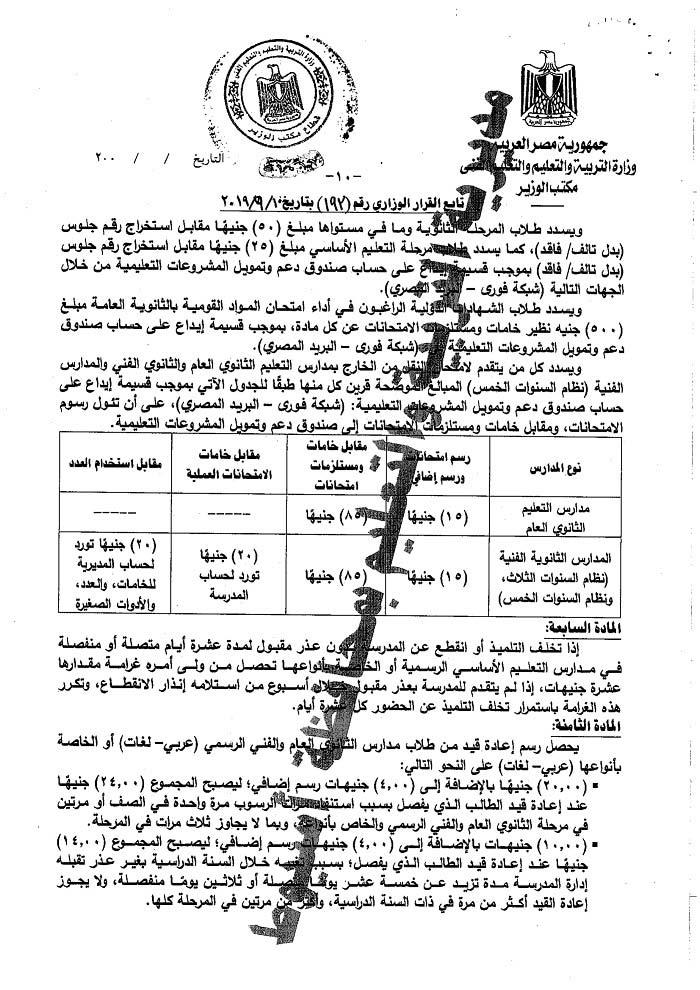 جمهورية مصر العربية
وزارة التربية والتعليم والتعليم الفنى
مكتب الوزير
وزارة التربية والتعليم والتعليم الفني
قطاع مكتب الوزير
التاريخ / / ٢٠٠
-١٠-
تابع القرار الوزاري رقم (١٩٧) بتاريخ ٢٠١٩/٩/١٠
ويسدد طلاب المرحلة الثانوية وما في مستواها مبلغ (٥٠) جنيهًا مقابل استخراج رقم جلوس
(بدل تالف/ فاقد)، كما يسدد طلاب مرحلة التعليم الأساسي مبلغ (٢٥) جنيهًا مقابل استخراج رقم جلوس
(بدل تالف/ فاقد) بموجب قسيمة إيداع على حساب صندوق دعم وتمويل المشروعات التعليمية من خلال
الجهات التالية (شبكة فورى – البريد المصري).
ويسدد طلاب الشهادات الدولية الراغبون في أداء امتحان المواد القومية بالثانوية العامة مبلغ
(٥٠٠) جنيه نظير خامات ومستلزمات الامتحانات عن كل مادة، بموجب قسيمة إيداع على حساب صندوق
دعم وتمويل المشروعات التعليمية (شبكة فورى – البريد المصري).
ويسدد كل من يتقدم لامتحان النقل من الخارج بمدارس التعليم الثانوي العام والثانوي الفني والمدارس
الفنية (نظام السنوات الخمس) المبالغ الموضحة قرين كل منها طبقًا للجدول الآتي بموجب قسيمة إيداع على
حساب صندوق دعم وتمويل المشروعات التعليمية: (شبكة فورى – البريد المصري)، على أن تئول رسوم
الامتحانات، ومقابل خامات ومستلزمات الامتحانات إلى صندوق دعم وتمويل المشروعات التعليمية.
نوع المدارس
رسم امتحانات ورسم إضافي
مقابل خامات ومستلزمات امتحانات
مقابل خامات الامتحانات العملية
مقابل استخدام العدد
مدارس التعليم الثانوي العام
(١٥) جنيهًا
(٨٥) جنيهًا
-----
-----
المدارس الثانوية الفنية (نظام السنوات الثلاث، ونظام السنوات الخمس)
(١٥) جنيهًا
(٨٥) جنيهًا
(٢٠) جنيهًا تورد لحساب المدرسة
(٢٠) جنيهًا تورد لحساب المديرية للخامات، والعدد، والأدوات الصغيرة
المادة السابعة:
إذا تخلف التلميذ أو انقطع عن المدرسة بدون عذر مقبول لمدة عشرة أيام متصلة أو منفصلة
في مدارس التعليم الأساسي الرسمية أو الخاصة بأنواعها تحصل من ولى أمره غرامة مقدارها
عشرة جنيهات، إذا لم يتقدم للمدرسة بعذر مقبول خلال أسبوع من استلامه إنذار الانقطاع، وتكرر
هذه الغرامة باستمرار تخلف التلميذ عن الحضور كل عشرة أيام.
المادة الثامنة:
يحصل رسم إعادة قيد من طلاب مدارس الثانوي العام والفني الرسمي (عربي– لغات) أو الخاصة
بأنواعها (عربي– لغات) على النحو التالي:
▪ (٢٠,٠٠) جنيهًا بالإضافة إلى (٤,٠٠) جنيهات رسم إضافي؛ ليصبح المجموع (٢٤,٠٠) جنيهًا
عند إعادة قيد الطالب الذي يفصل بسبب استنفاد مرات الرسوب مرة واحدة في الصف أو مرتين
في مرحلة الثانوي العام والفني الرسمي والخاص بأنواعه، وبما لا يجاوز ثلاث مرات في المرحلة.
▪ (١٠,٠٠) جنيهات بالإضافة إلى (٤,٠٠) جنيهات رسم إضافي؛ ليصبح المجموع (١٤,٠٠)
جنيهًا عند إعادة قيد الطالب الذي يفصل؛ بسبب تغيبه خلال السنة الدراسية بغير عذر تقبله
إدارة المدرسة مدة تزيد عن خمسة عشر يومًا متصلة أو ثلاثين يومًا منفصلة، ولا يجوز
إعادة القيد أكثر من مرة في ذات السنة الدراسية، وأكثر من مرتين في المرحلة كلها.